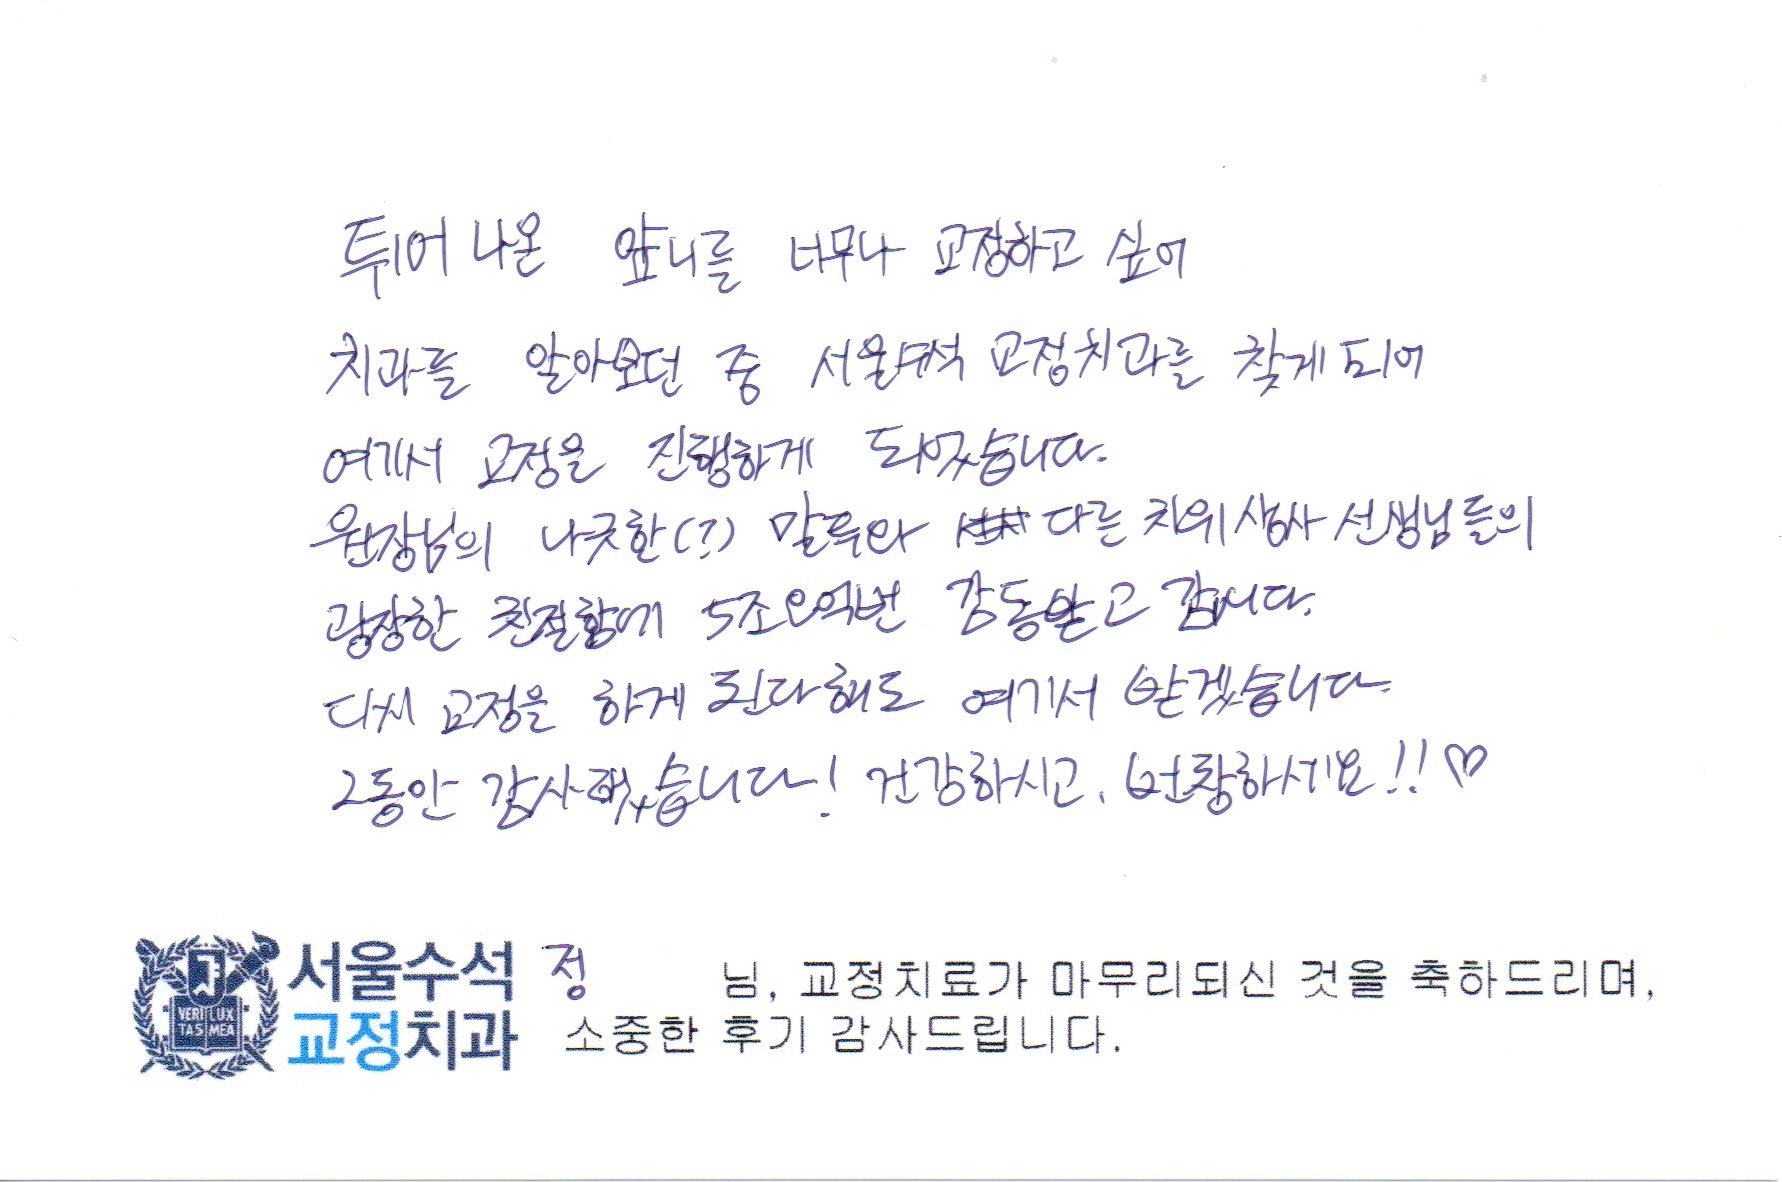 튀어 나온 앞니를 너무나 교정하고 싶어
치과를 알아보던 중 서울수석 교정치과를 찾게되어
여기서 교정을 진행하게 되었습니다.
원장님의 나긋한(?) 말투와 다른 치위생사 선생님들의
굉장한 친절함에 5조오억번 감동받고 갑니다.
다시 교정을 하게 된다해도 여기서 받겠습니다
그동안 감사했습니다! 건강하시고, 번창하세요!!♡
서울수석 정 님, 교정치료가 마무리되신 것을 축하드리며,
교정치과 소중한 후기 감사드립니다.
VERI LUX
TAS MEA